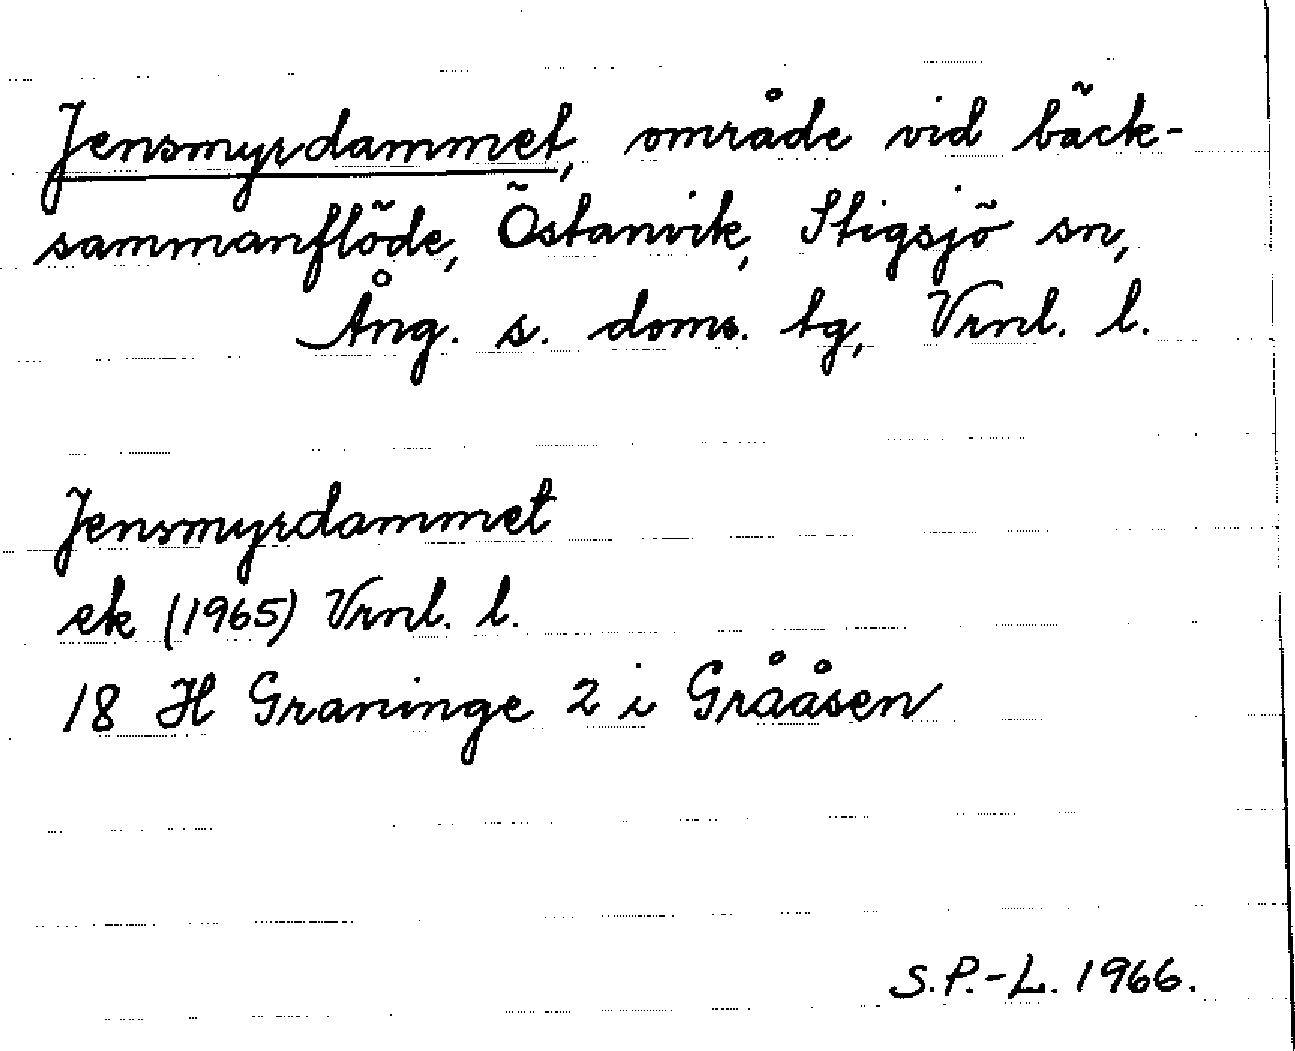 Jensmyrdammet, område vid bäck-
sammanflöde, Östanvik, Stigsjö sn,
Ång. s. doms. tg, Vrnl. l.
Jensmyrdammet
ek (1965) Vrnl. l.
18 H Graninge 2 i Grååsen
S.P.-L. 1966.